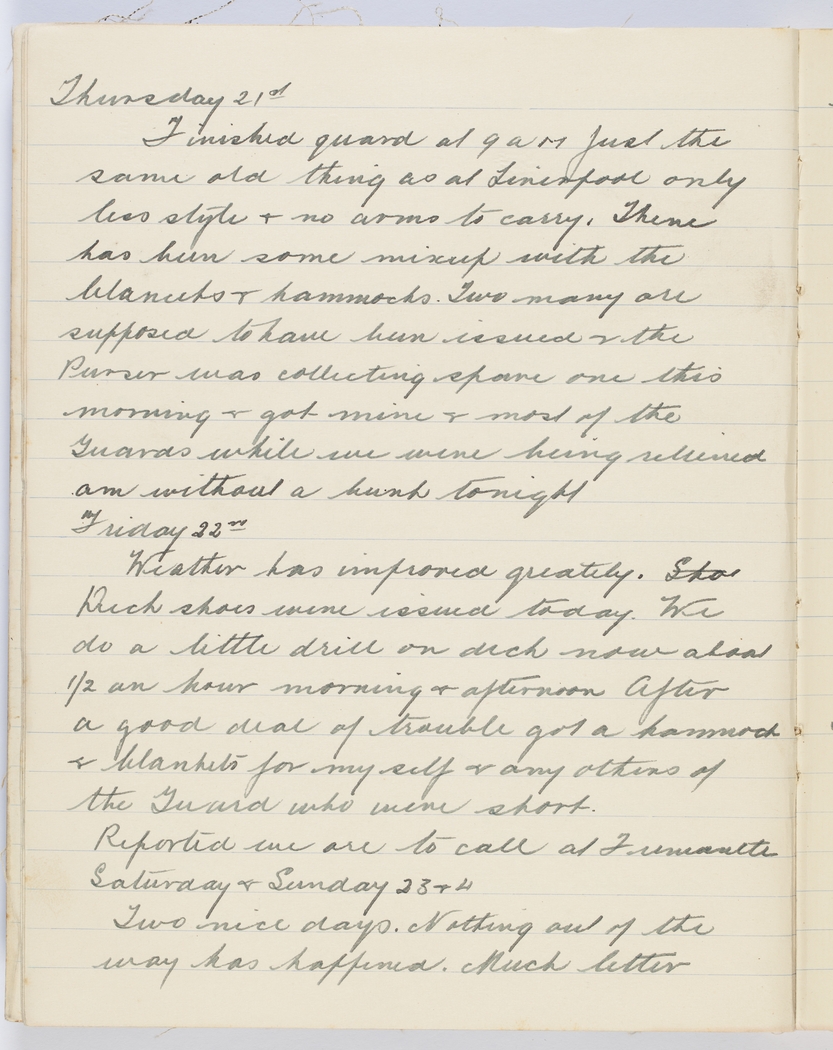 Thursday 21st
Finished guard at 9 am Just the
same old thing as at Liverpool only
less style & no arms to carry. There
has been some mixup with the
blankets & hammocks. Two many are
supposed to have been issued & the
Purser was collecting spare one this
morning & got mine & most of the
Guards while we were being relieved
am without a bunk tonight
Friday 22nd
Weather has improved greately. Shoe
Deck shoes were issued today. We
do a little drill on deck now about
1/2 an hour morning & afternoon After
a good deal of trouble got a hammock
& blankets for my self & any others of
the Guard who were short.
Reported we are to call at Fremantle
Saturday & Sunday 23 & 4
Two nice days. Nothing out of the
way has happened. Much better